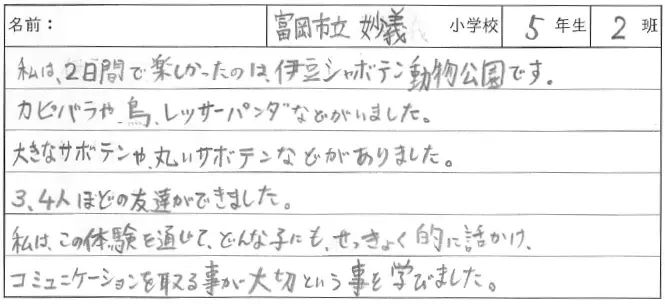 名前： 富岡市立 妙義 小学校 5 年生 2 班
私は、2日間で楽しかったのは、伊豆シャボテン動物公園です。
カピバラや、鳥、レッサーパンダなどがいました。
大きなサボテンや、丸いサボテンなどがありました。
3、4人ほどの友達ができました。
私は、この体験を通じて、どんな子にも、せっきょく的に話かけ、
コミュニケーションを取る事が大切という事を学びました。